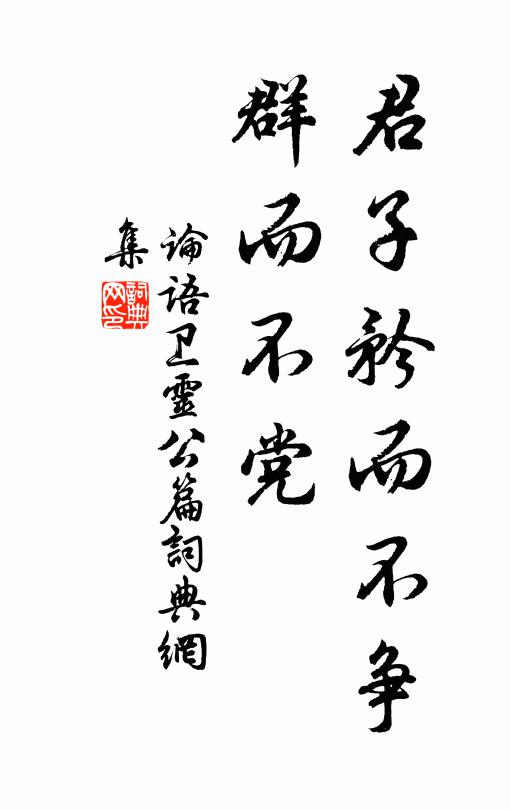 君子矜而不争
群而不党
論语卫靈公篇詞典網
集
詞典网印